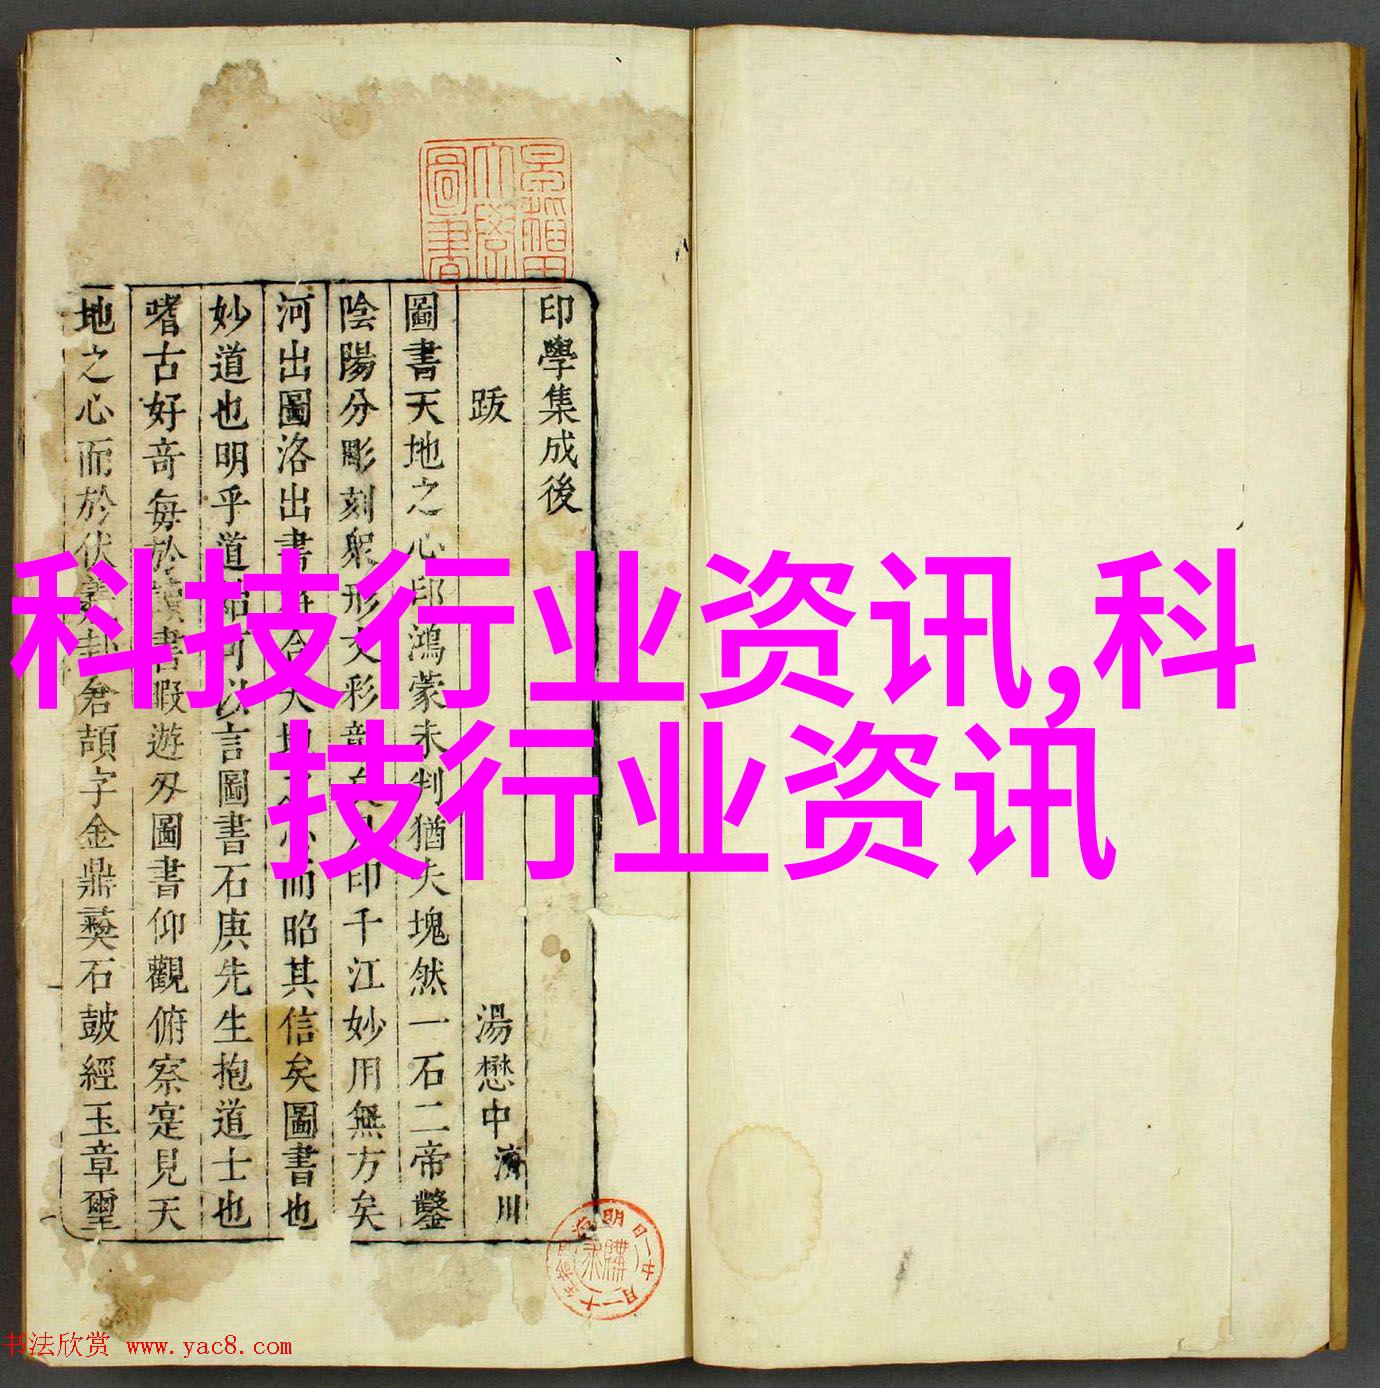 印學集成後
跋
湯懋中
濟川
圖書天地之心印鴻蒙未判猶夫塊然一石二帝鑿
陰陽分彫刻衆形文彩
印千江妙用無方矣
河出圖洛出書
而昭其信矣圖書也
妙道也明乎道
可以言圖書石庚先生抱道士也
嗜古好奇每於讀書暇遊刃圖書仰觀俯察寔見天
地之心而於伏羲卦倉頡字金鼎彝石鼓經玉章璽
科技行业资讯,科
技行业资讯
书法欣赏 www.yac8.com